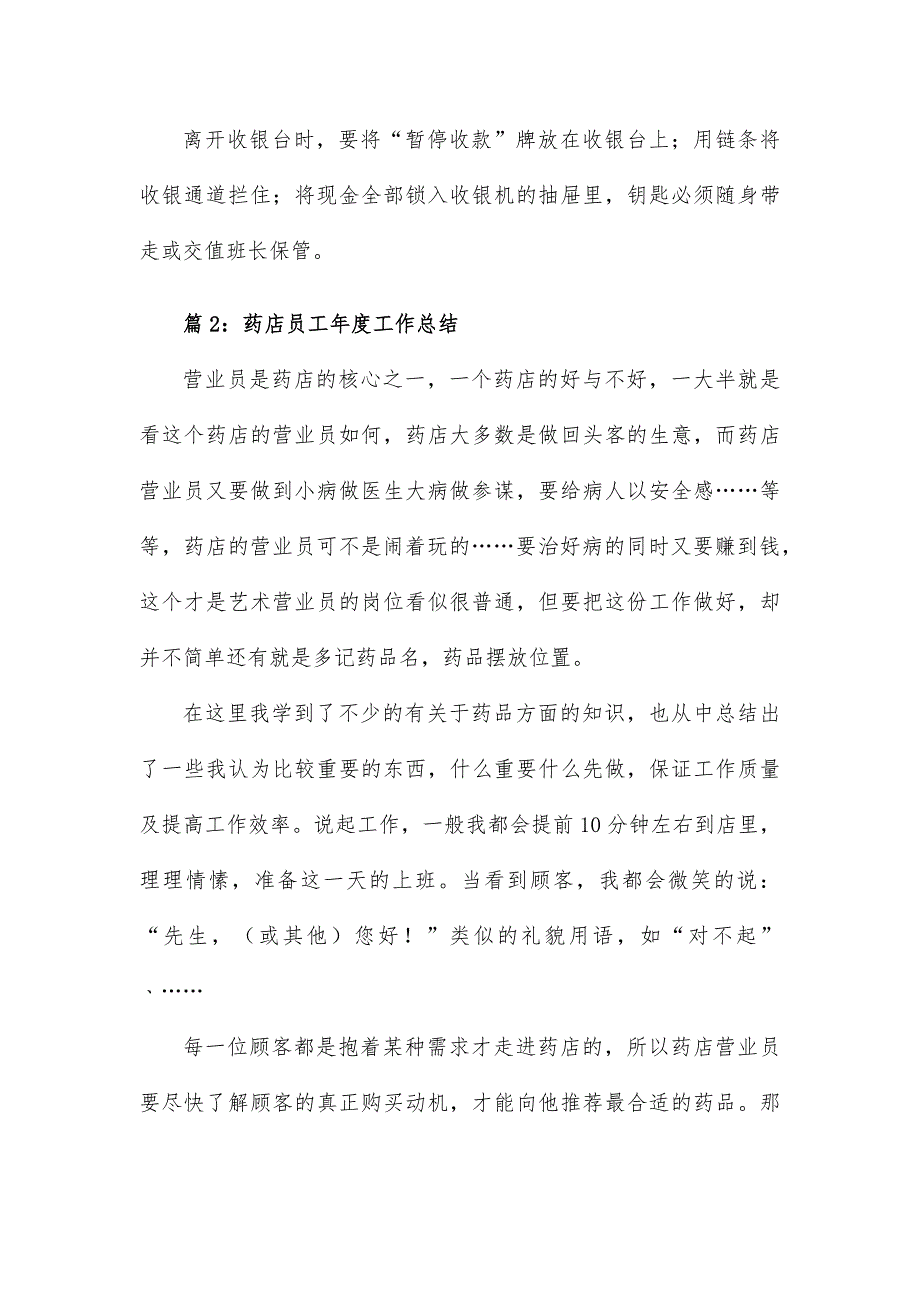 离开收银台时，要将“暂停收款”牌放在收银台上；用链条将
收银通道拦住；将现金全部锁入收银机的抽屉里，钥匙必须随身带
走或交值班长保管。
篇2：药店员工年度工作总结
营业员是药店的核心之一，一个药店的好与不好，一大半就是
看这个药店的营业员如何，药店大多数是做回头客的生意，而药店
营业员又要做到小病做医生大病做参谋，要给病人以安全感……等
等，药店的营业员可不是闹着玩的……要治好病的同时又要赚到钱，
这个才是艺术营业员的岗位看似很普通，但要把这份工作做好，却
并不简单还有就是多记药品名，药品摆放位置。
在这里我学到了不少的有关于药品方面的知识，也从中总结出
了一些我认为比较重要的东西，什么重要什么先做，保证工作质量
及提高工作效率。说起工作，一般我都会提前10分钟左右到店里，
理理情愫，准备这一天的上班。当看到顾客，我都会微笑的说：
“先生，（或其他）您好！”类似的礼貌用语，如“对不起”
、……
每一位顾客都是抱着某种需求才走进药店的，所以药店营业员
要尽快了解顾客的真正购买动机，才能向他推荐最合适的药品。那